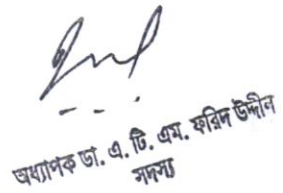 অধ্যাপক ডা. এ. টি. এম. ফরিদ উদ্দীন
সদস্য